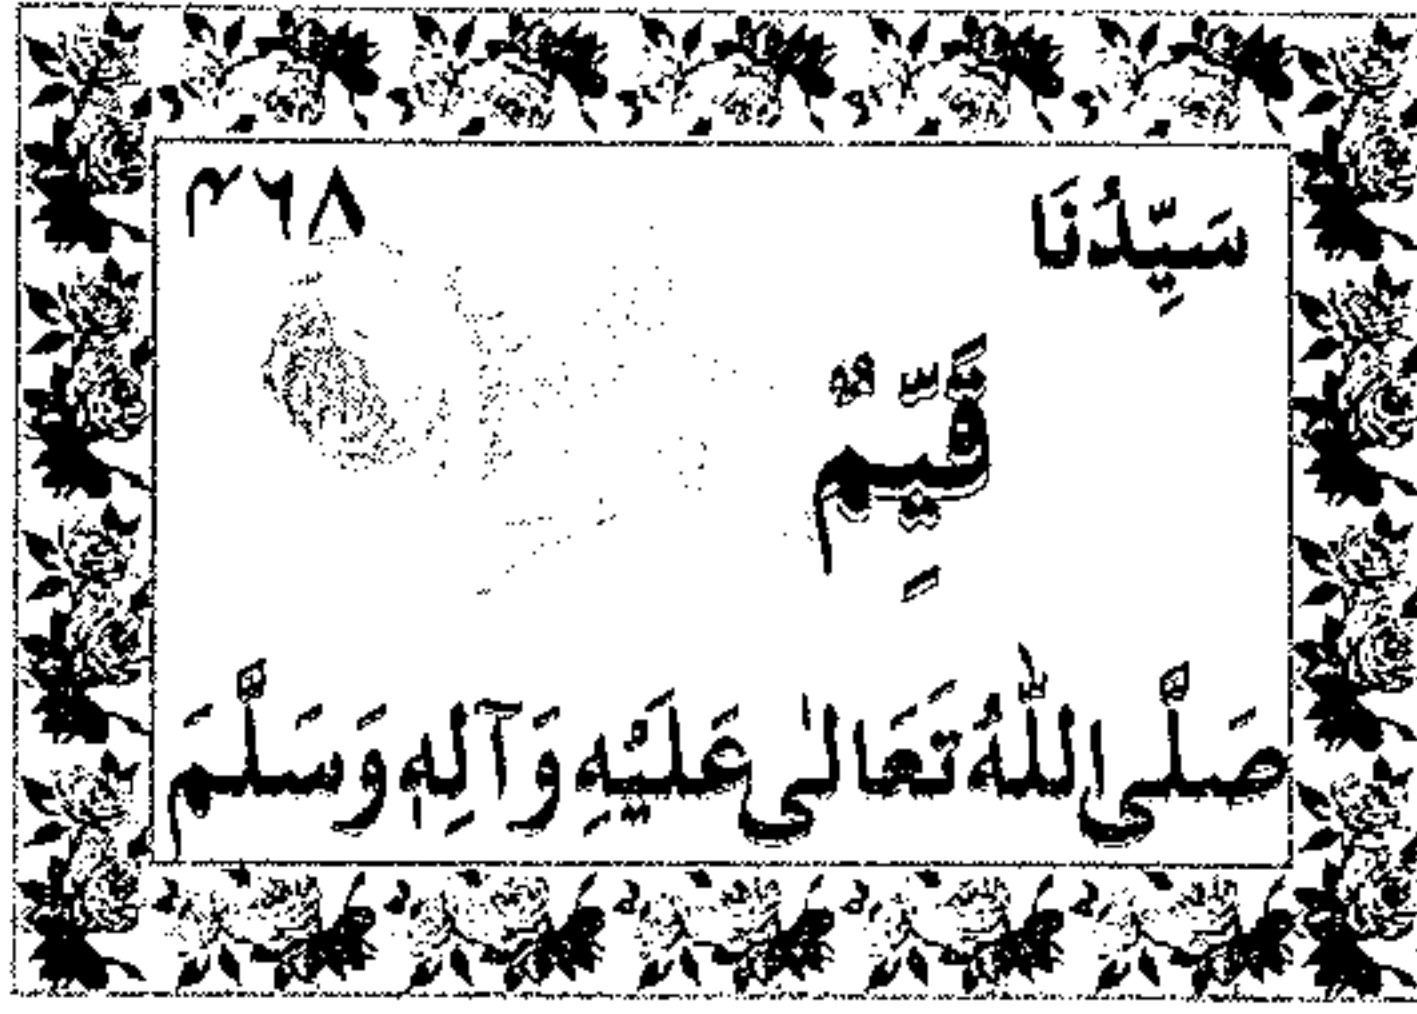 ۲۶۸ سَيِّدُنَا
قَيِّمٌ
صَلَّى اللّٰهُ تَعَالٰى عَلَيْهِ وَآلِهٖ وَسَلَّمَ